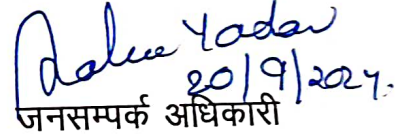 Yadav
20/9/2024.
जनसम्पर्क अधिकारी